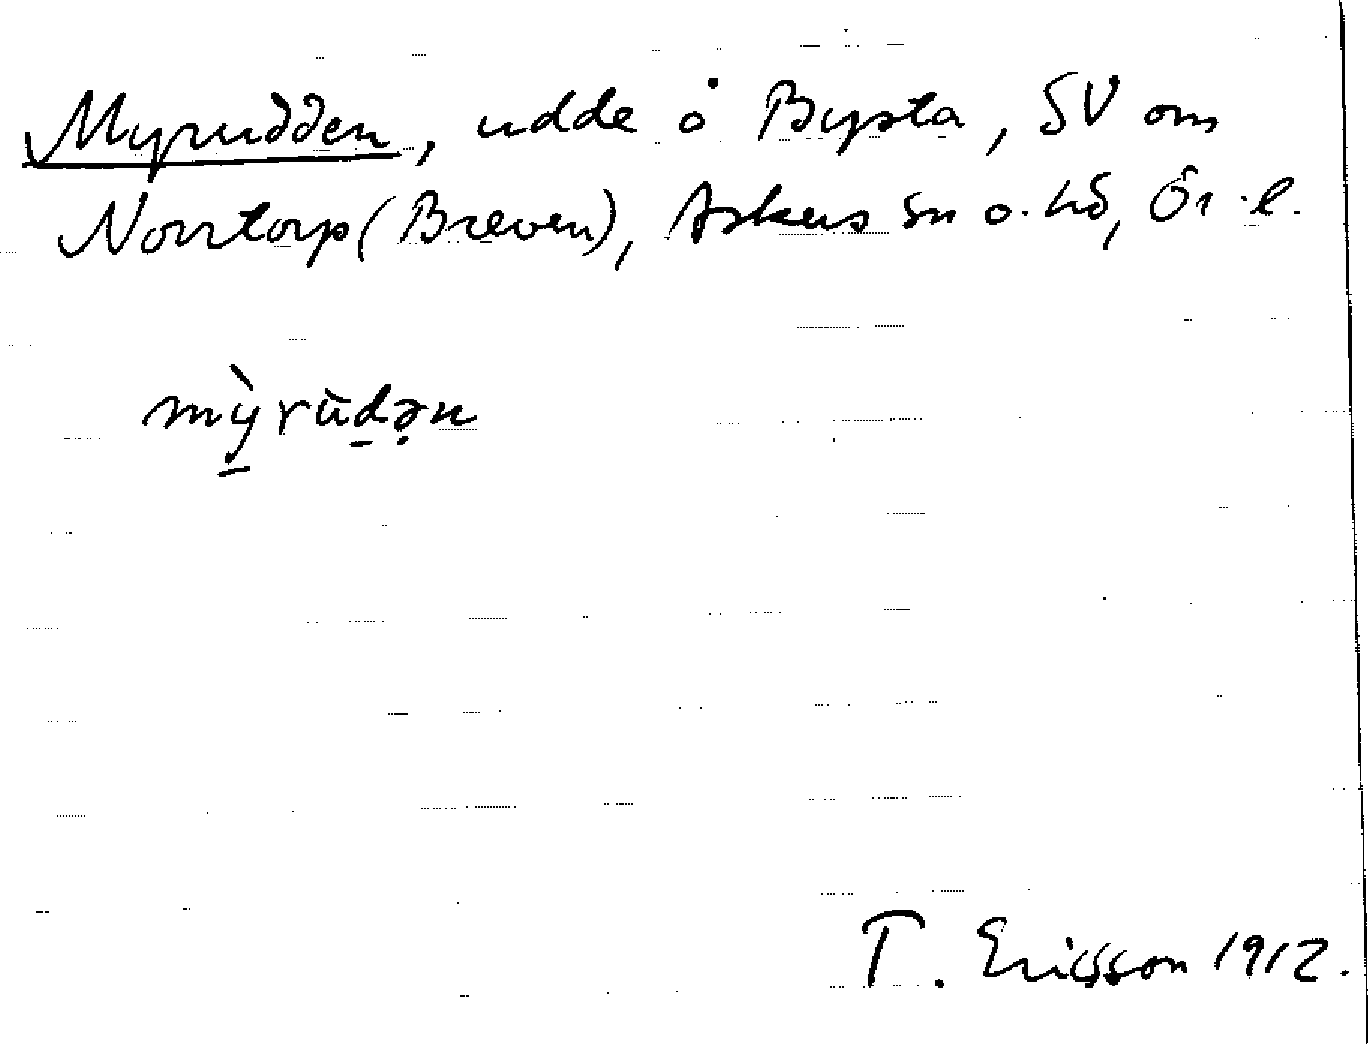 Myrudden, udde å Bysta, SV om
Norrtorp (Breven), Askers sn o. hd, Ör. l.
mỳ̱rūd̠ə̣n
T. Ericsson 1912.